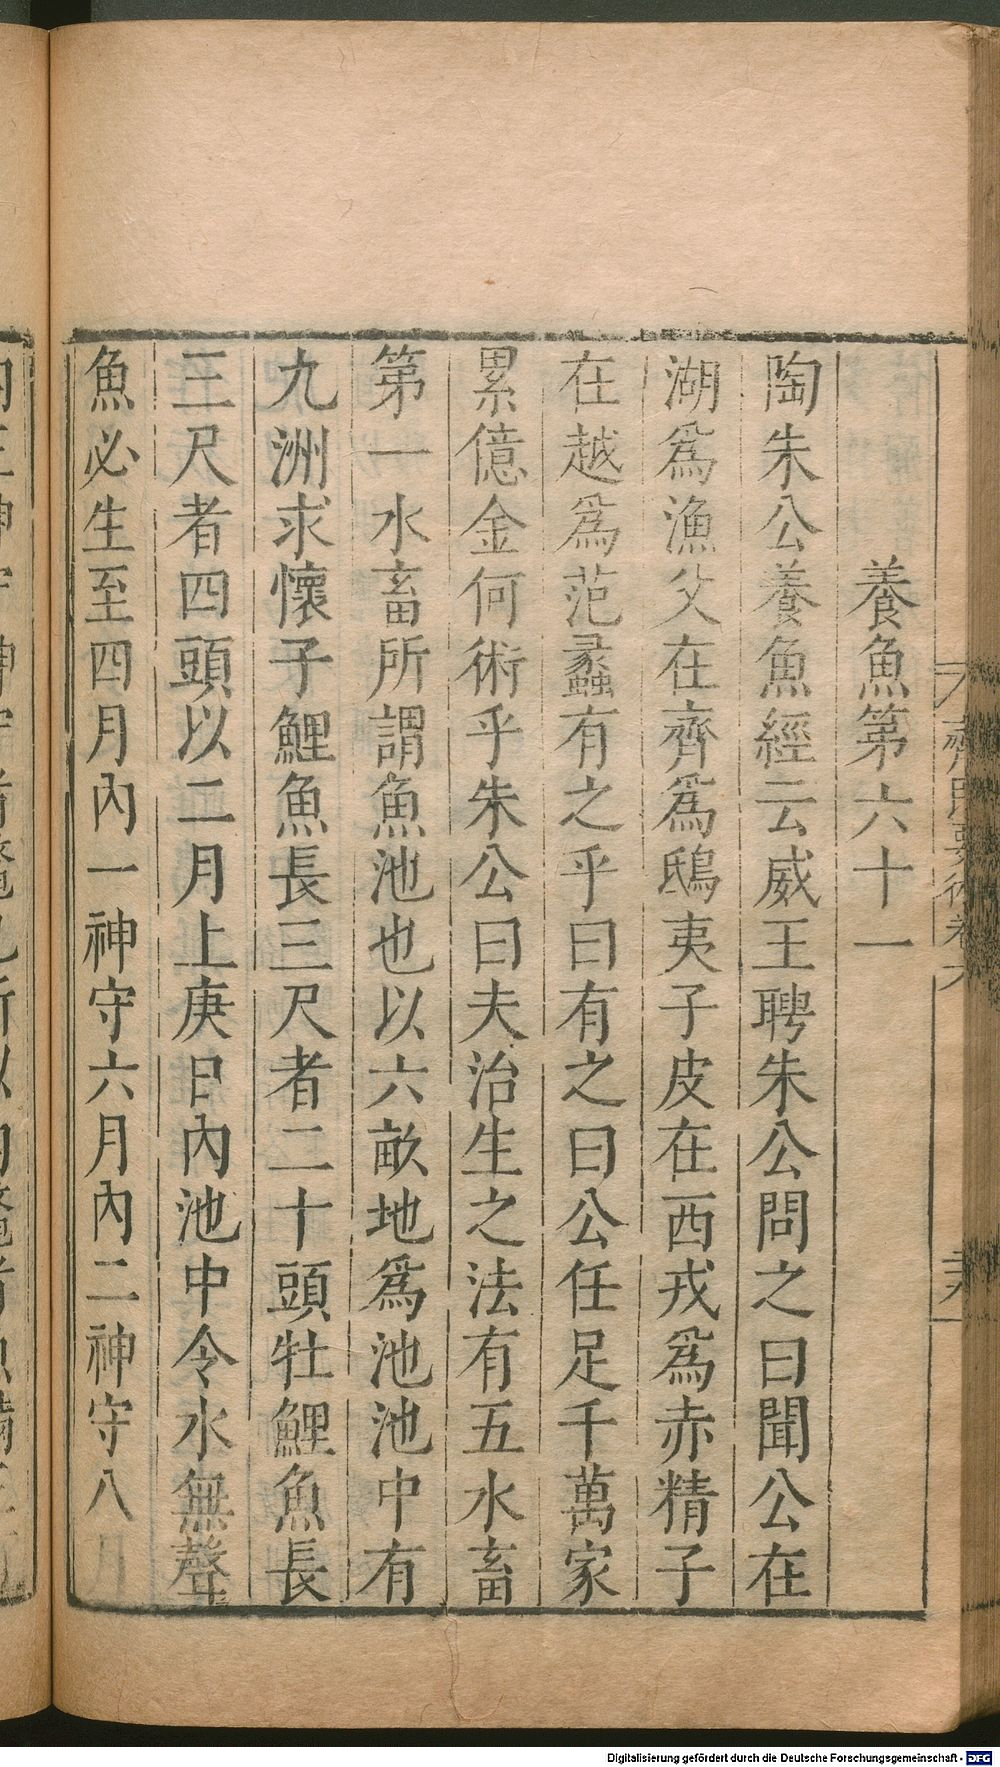 養魚第六十一
陶朱公養魚經云威王聘朱公問之曰聞公在
湖爲漁父在齊爲鴟夷子皮在西戎爲赤精子
在越爲范蠡有之乎曰有之曰公任足千萬家
累億金何術乎朱公曰夫治生之法有五水畜
第一水畜所謂魚池也以六畝地爲池池中有
九洲求懷子鯉魚長三尺者二十頭牡鯉魚長
三尺者四頭以二月上庚日內池中令水無聲
魚必生至四月內一神守六月內二神守八月
Digitalisierung gefördert durch die Deutsche Forschungsgemeinschaft - DFG